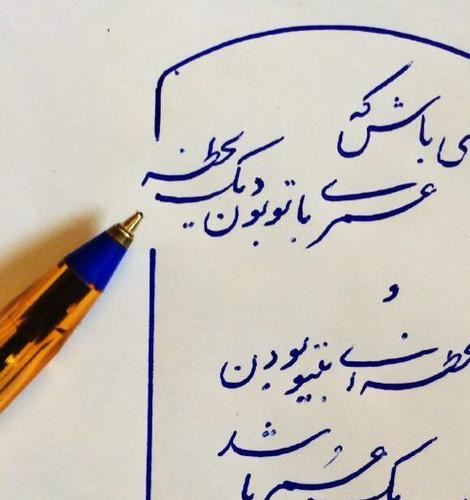 ی باش که
عمری با تو بودن یک لحظه
و
حظه ای بیتو بودن
یک عمر با شد